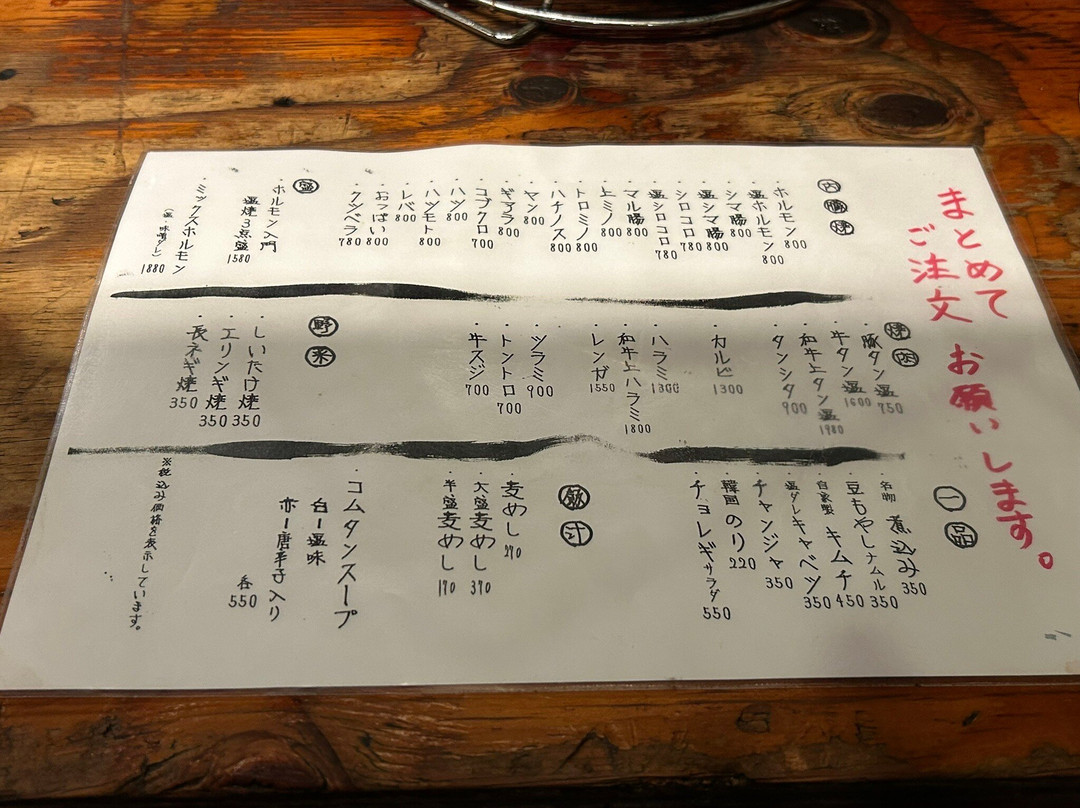 まとめて
ご注文 お願いします。
内臓焼
・ホルモン 800
・塩ホルモン 800
・シマ腸 800
・塩シマ腸 800
・シロコロ 780
・塩シロコロ 780
・マル腸 800
・上ミノ 800
・トロミノ 800
・ハチノス 800
・ヤン 800
・ギアラ 800
・コブクロ 700
・ハツ 800
・ハツモト 800
・レバ 800
・おっぱい 800
・クツベラ 780
盛
・ホルモン入門
塩焼3点盛 1580
・ミックスホルモン
(塩・味噌ダレ) 1880
焼肉
・豚タン塩 750
・牛タン塩 1600
・和牛上タン塩 1980
・タンシタ 900
・カルビ 1300
・ハラミ 1300
・和牛上ハラミ 1800
・レンガ 1550
・ツラミ 900
・トントロ 700
・牛スジ 700
野菜
・しいたけ焼 350
・エリンギ焼 350
・長ネギ焼 350
一品
・名物 煮込み 350
・豆もやしナムル 350
・自家製 キムチ 450
・塩ダレキャベツ 350
・チャンジャ 350
・韓国のり 220
・チョレギサラダ 550
飯汁
・麦めし 270
・大盛麦めし 370
・半盛麦めし 170
・コムタンスープ
白ー塩味
赤ー唐辛子入り
各 550
※税込み価格を表示しています。